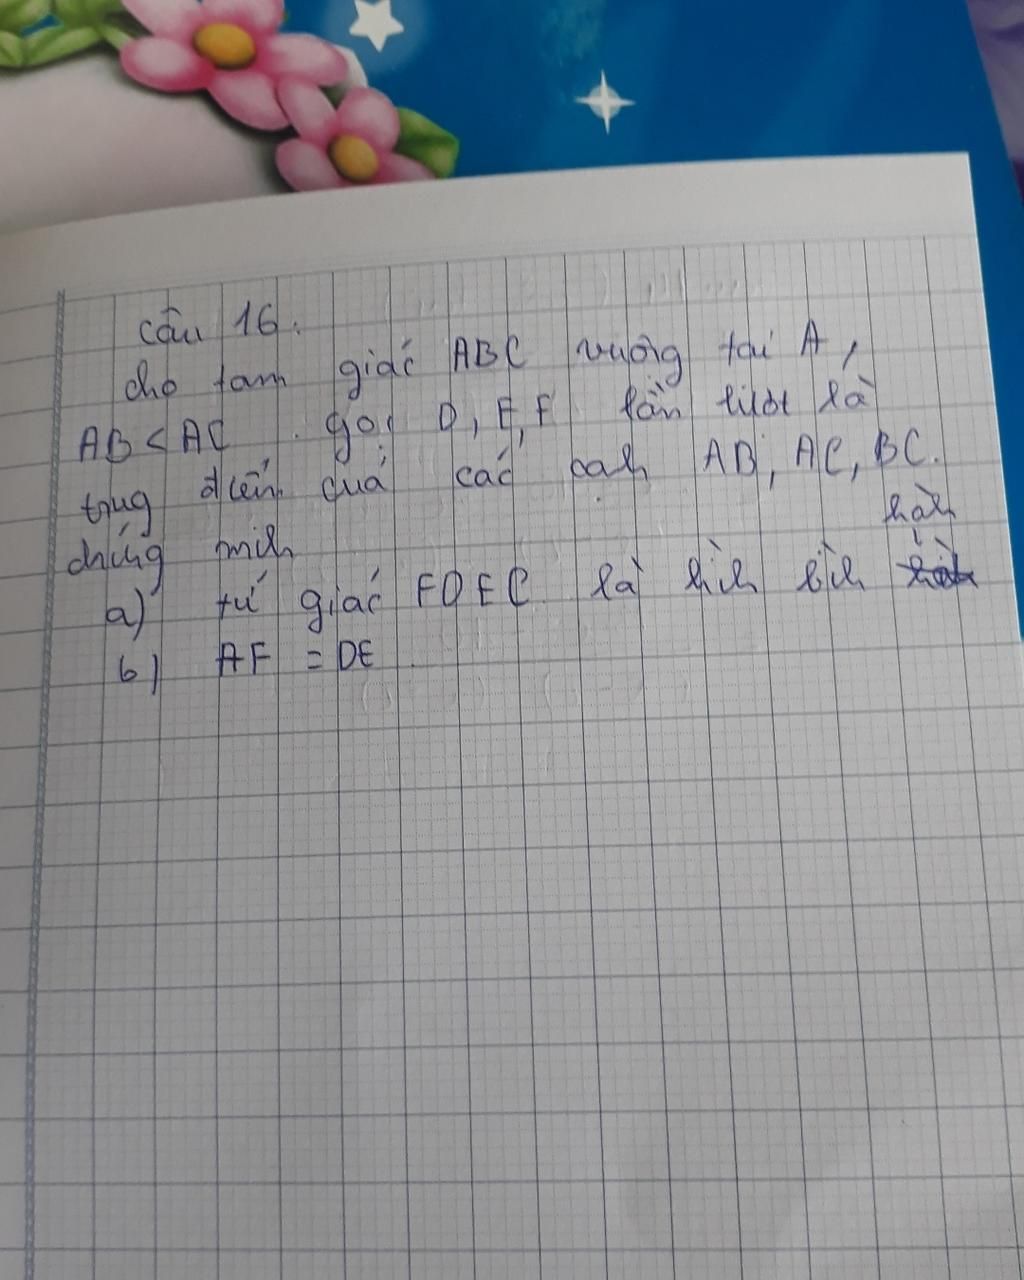 câu 16.
cho tam giác ABC vuông tại A,
AB < AC. gọi D, E, F lần lượt là
trung điểm của các cạnh AB, AC, BC.
chứng minh
a) tứ giác FDEC là hình bình hành
b) AF = DE